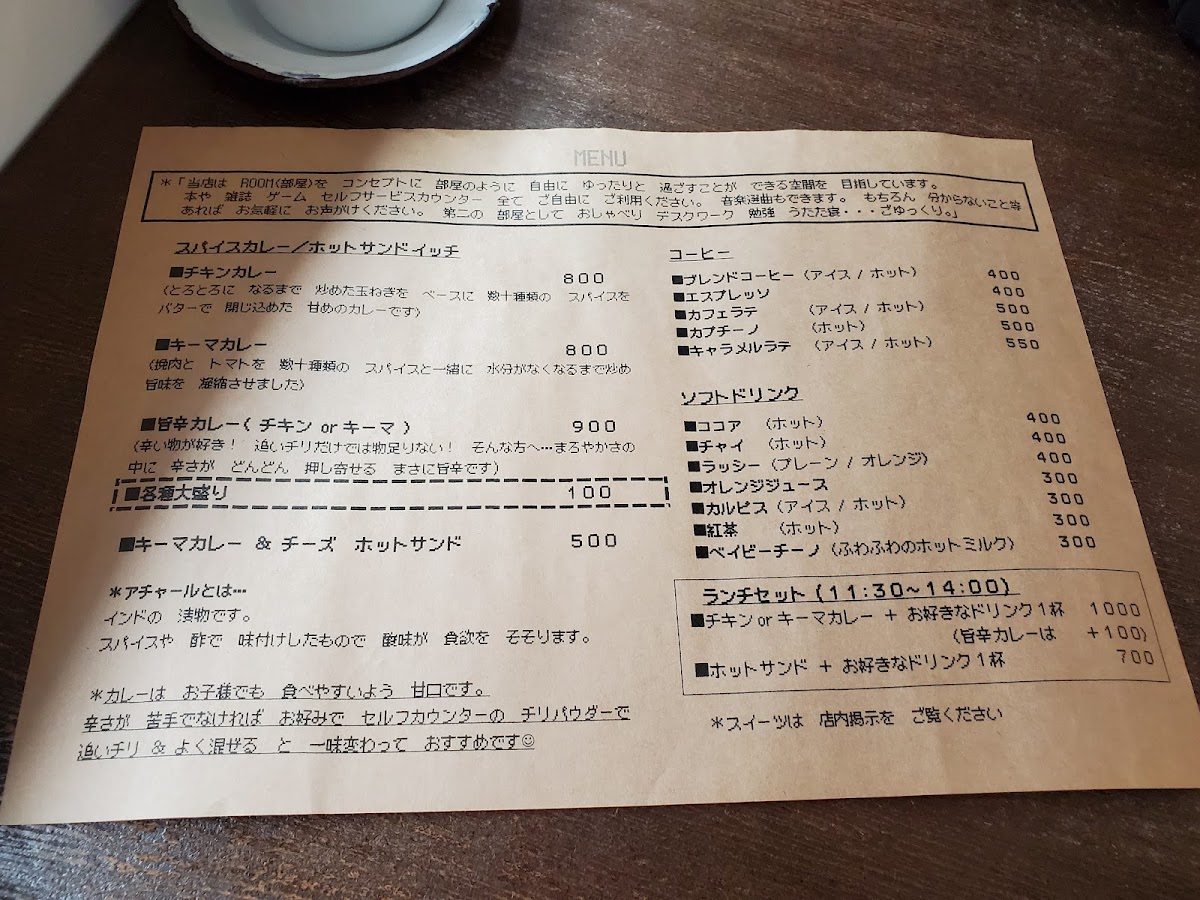 MENU
*「当店は ROOM(部屋)を コンセプトに 部屋のように 自由に ゆったりと 過ごすことが できる空間を 目指しています。
本や 雑誌 ゲーム セルフサービスカウンター 全て ご自由に ご利用ください。 音楽選曲もできます。 もちろん 分からないこと等
あれば お気軽に お声がけください。 第二の 部屋として おしゃべり デスクワーク 勉強 うたた寝・・・ごゆっくり。」
スパイスカレー/ホットサンドイッチ
■チキンカレー 800
(とろとろに なるまで 炒めた玉ねぎを ベースに 数十種類の スパイスを
バターで 閉じ込めた 甘めのカレーです)
■キーマカレー 800
(挽肉と トマトを 数十種類の スパイスと一緒に 水分がなくなるまで炒め
旨味を 凝縮させました)
■旨辛カレー( チキン or キーマ ) 900
(辛い物が好き! 追いチリだけでは物足りない! そんな方へ…まろやかさの
中に 辛さが どんどん 押し寄せる まさに旨辛です)
■各種大盛り 100
■キーマカレー & チーズ ホットサンド 500
*アチャールとは…
インドの 漬物です。
スパイスや 酢で 味付けしたもので 酸味が 食欲を そそります。
*カレーは お子様でも 食べやすいよう 甘口です。
辛さが 苦手でなければ お好みで セルフカウンターの チリパウダーで
追いチリ & よく混ぜる と 一味変わって おすすめです☺
コーヒー
■ブレンドコーヒー (アイス / ホット) 400
■エスプレッソ 400
■カフェラテ (アイス / ホット) 500
■カプチーノ (ホット) 500
■キャラメルラテ (アイス / ホット) 550
ソフトドリンク
■ココア (ホット) 400
■チャイ (ホット) 400
■ラッシー (プレーン / オレンジ) 400
■オレンジジュース 300
■カルピス (アイス / ホット) 300
■紅茶 (ホット) 300
■ベイビーチーノ (ふわふわのホットミルク) 300
ランチセット (11:30~14:00)
■チキン or キーマカレー + お好きなドリンク1杯 1000
(旨辛カレーは +100)
■ホットサンド + お好きなドリンク1杯 700
*スイーツは 店内掲示を ご覧ください